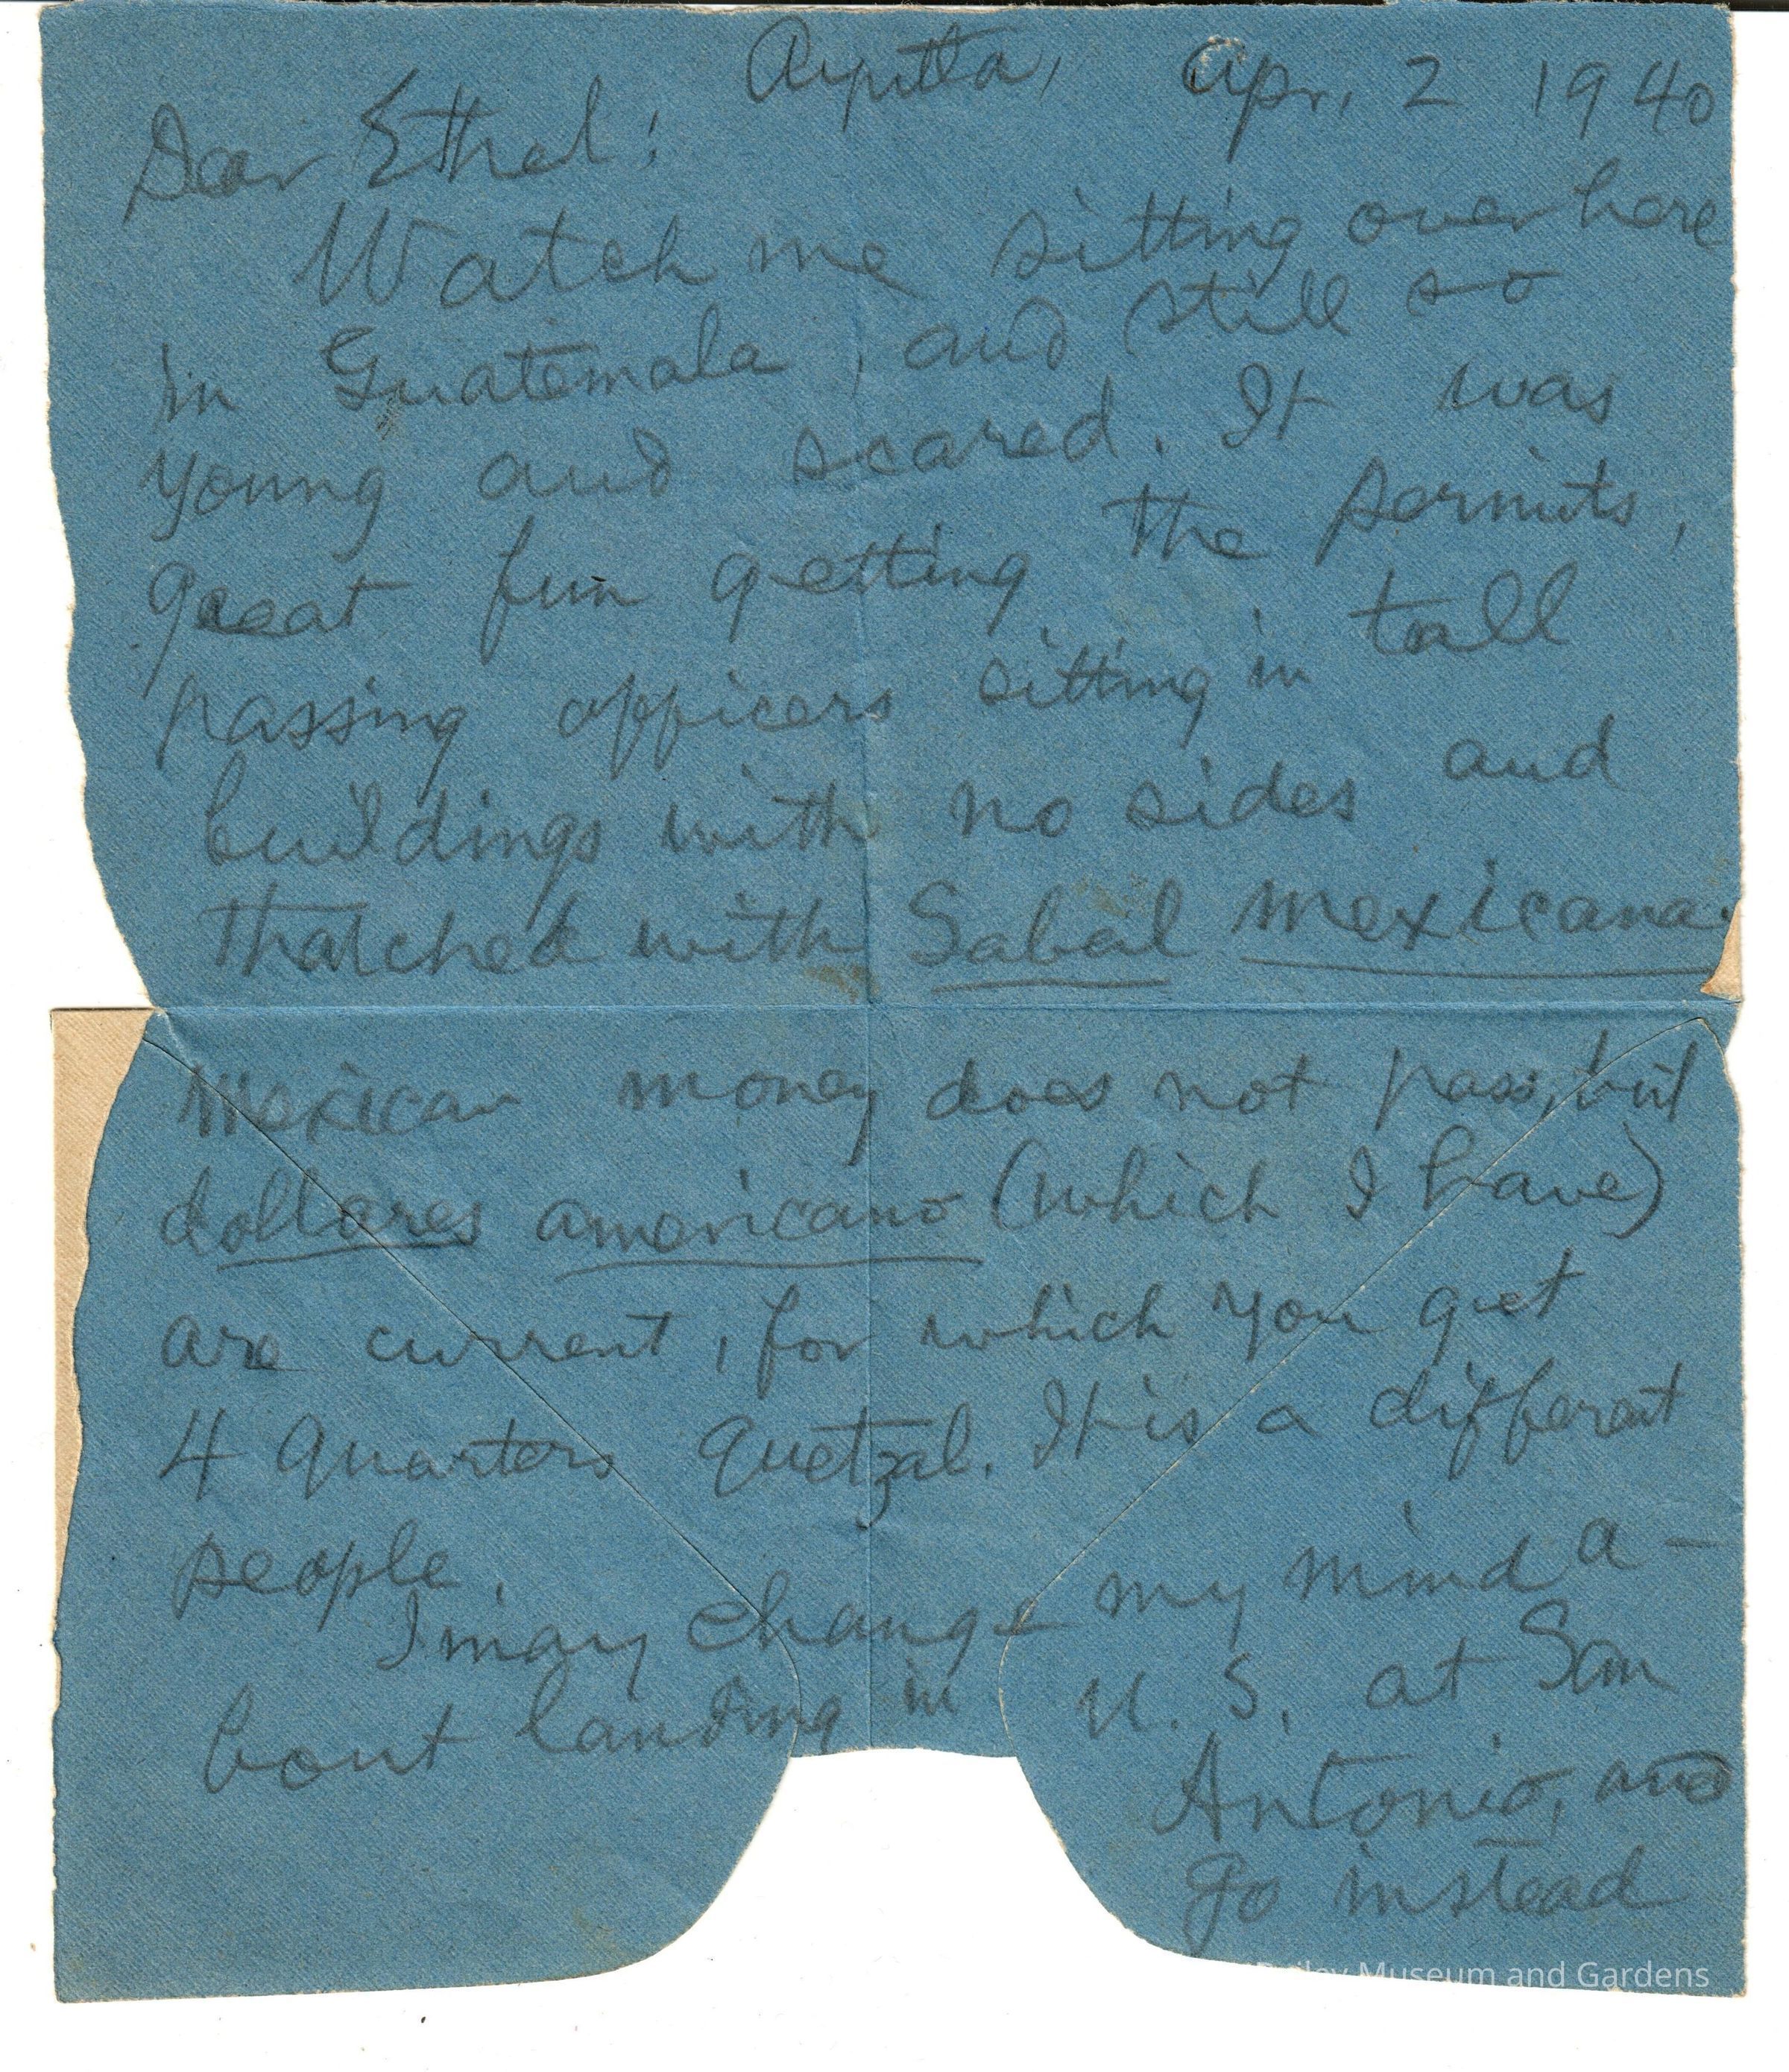 Ayutla, Apr. 2 1940
Dear Ethel:
Watch me sitting over here
in Guatemala, and still so
young and scared. It was
great fun getting the permits,
passing officers sitting in tall
buildings with no sides and
thatched with Sabal mexicana.
Mexican money does not pass, but
dollares americano (which I have)
are current, for which you get
4 quarters quetzal. It is a different
people.
I may change my mind a-
bout landing in U.S. at San
Antonio, and
go instead
Bailey Museum and Gardens